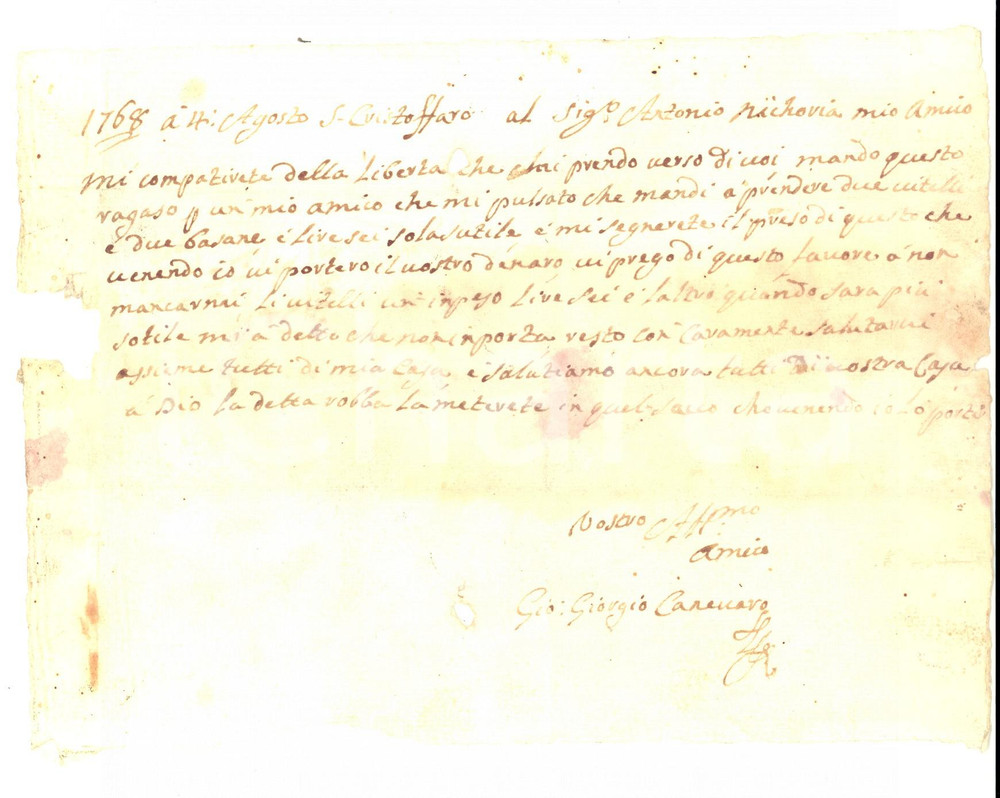 1768 à 4: Agosto S. Cristoffaro al Sig.r Antonio Nichovia mio Amico
Mi compatirete della Liberta che mi prendo verso di voi mando questo
ragaso p un mio amico che mi pulsato che mandi à prendere due vitelli
é due basane é Live sei sola sutile é mi segnerete il preso di questo che
venendo io vi portero il vostro denaro vi prego di questo favore a non
mancarmi Li vitelli un in peso Live sei é laltro quando sara più
sotile mi à detto che non inporta resto con Caramente salutarvi
assieme tutti di mia Casa e salutiamo ancora tutti di vostra Casa
a Dio la detta robba La meterete in quel sacco che venendo io Lo porti
Vostro Aff.mo
Amico
Gio: Giorgio Canevaro